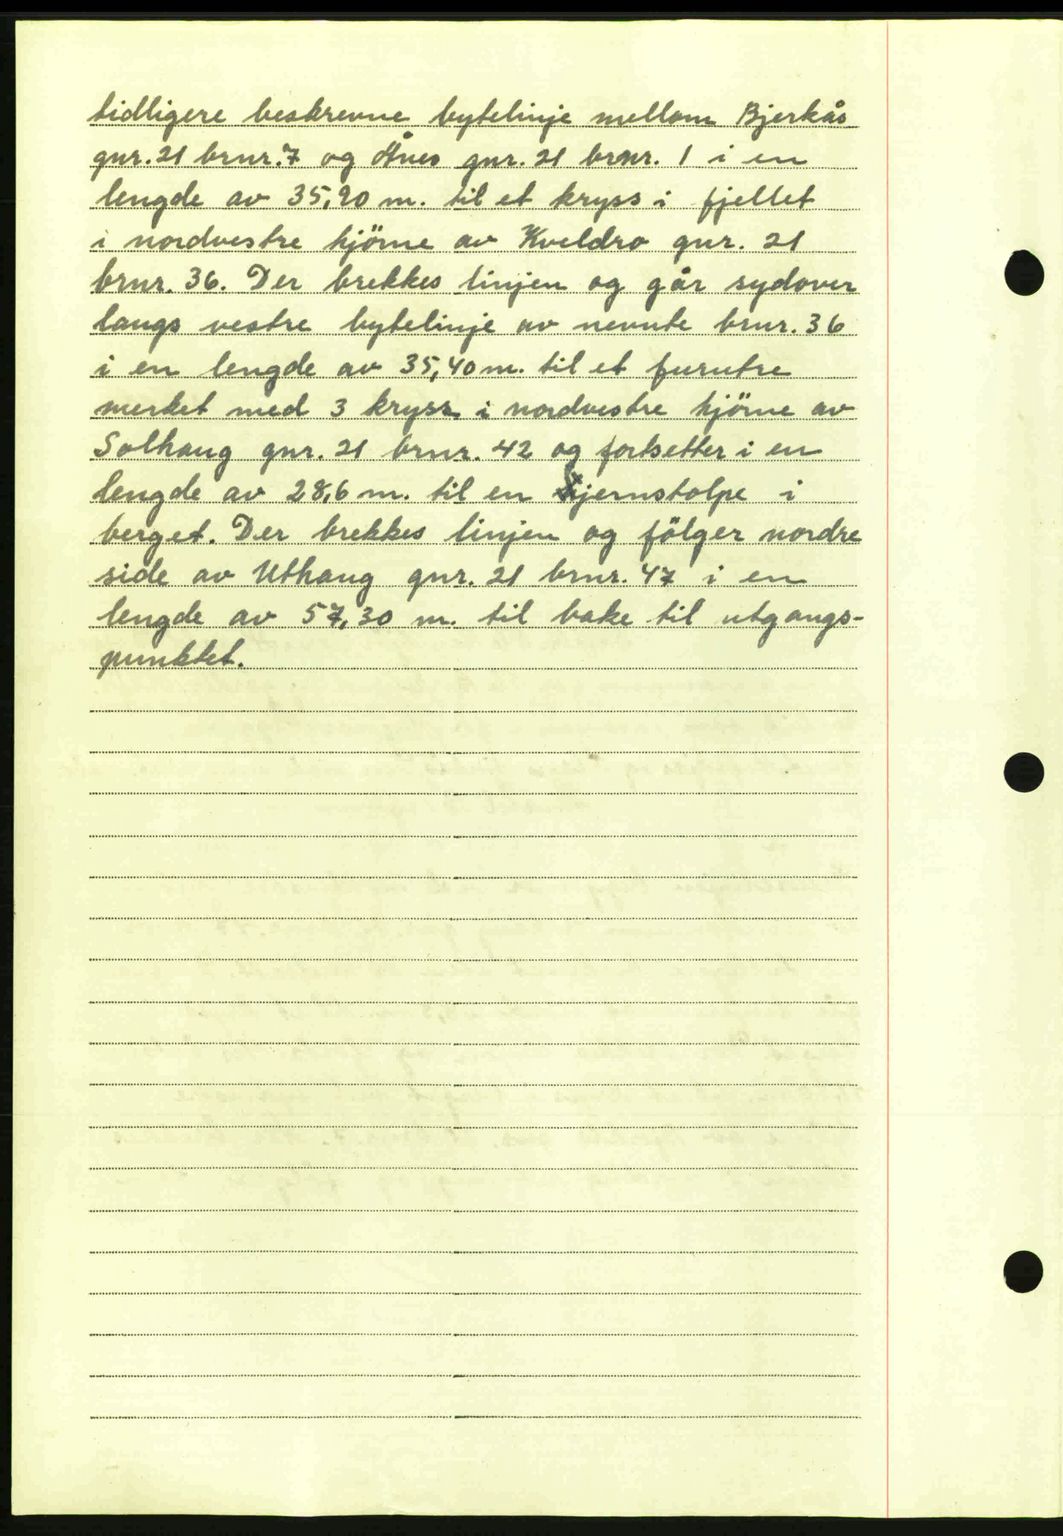 tidligere beskrevne bytelinje mellom Bjerkås
gnr. 21 brnr. 7 og Ånes gnr. 21 brnr. 1 i en
lengde av 35,20 m. til et kryss i fjellet
i nordvestre hjörne av Kveldro gnr. 21
brnr. 36. Der brekkes linjen og går sydover
langs vestre bytelinje av nevnte brnr. 36
i en lengde av 35,40 m. til et furutre
merket med 3 kryss i nordvestre hjörne av
Solhaug gnr. 21 brnr. 42 og fortsetter i en
lengde av 28,6 m. til en jernstolpe i
berget. Der brekkes linjen og fölger nordre
side av Uthaug gnr. 21 brnr. 47 i en
lengde av 57,30 m. til bake til utgangs-
punktet.